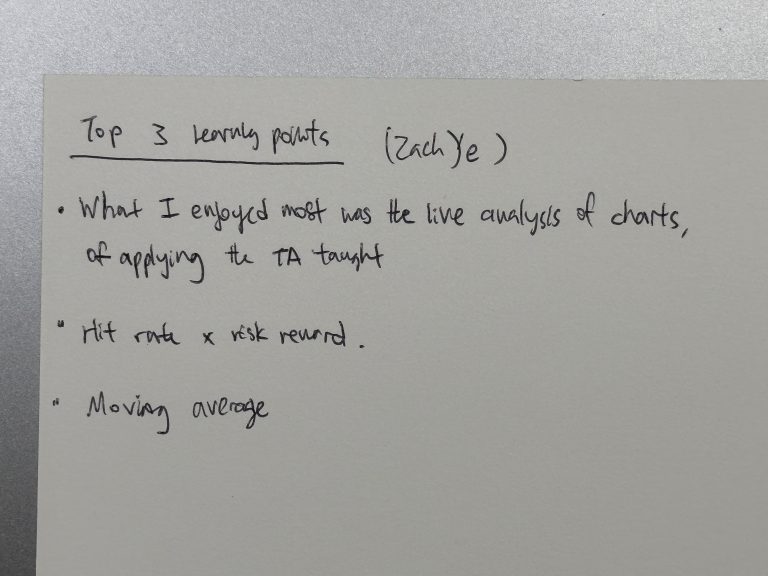 Top 3 learning points (Zach Ye)
• What I enjoyed most was the live analysis of charts,
of applying the TA taught
• Hit rate x risk reward.
• Moving average